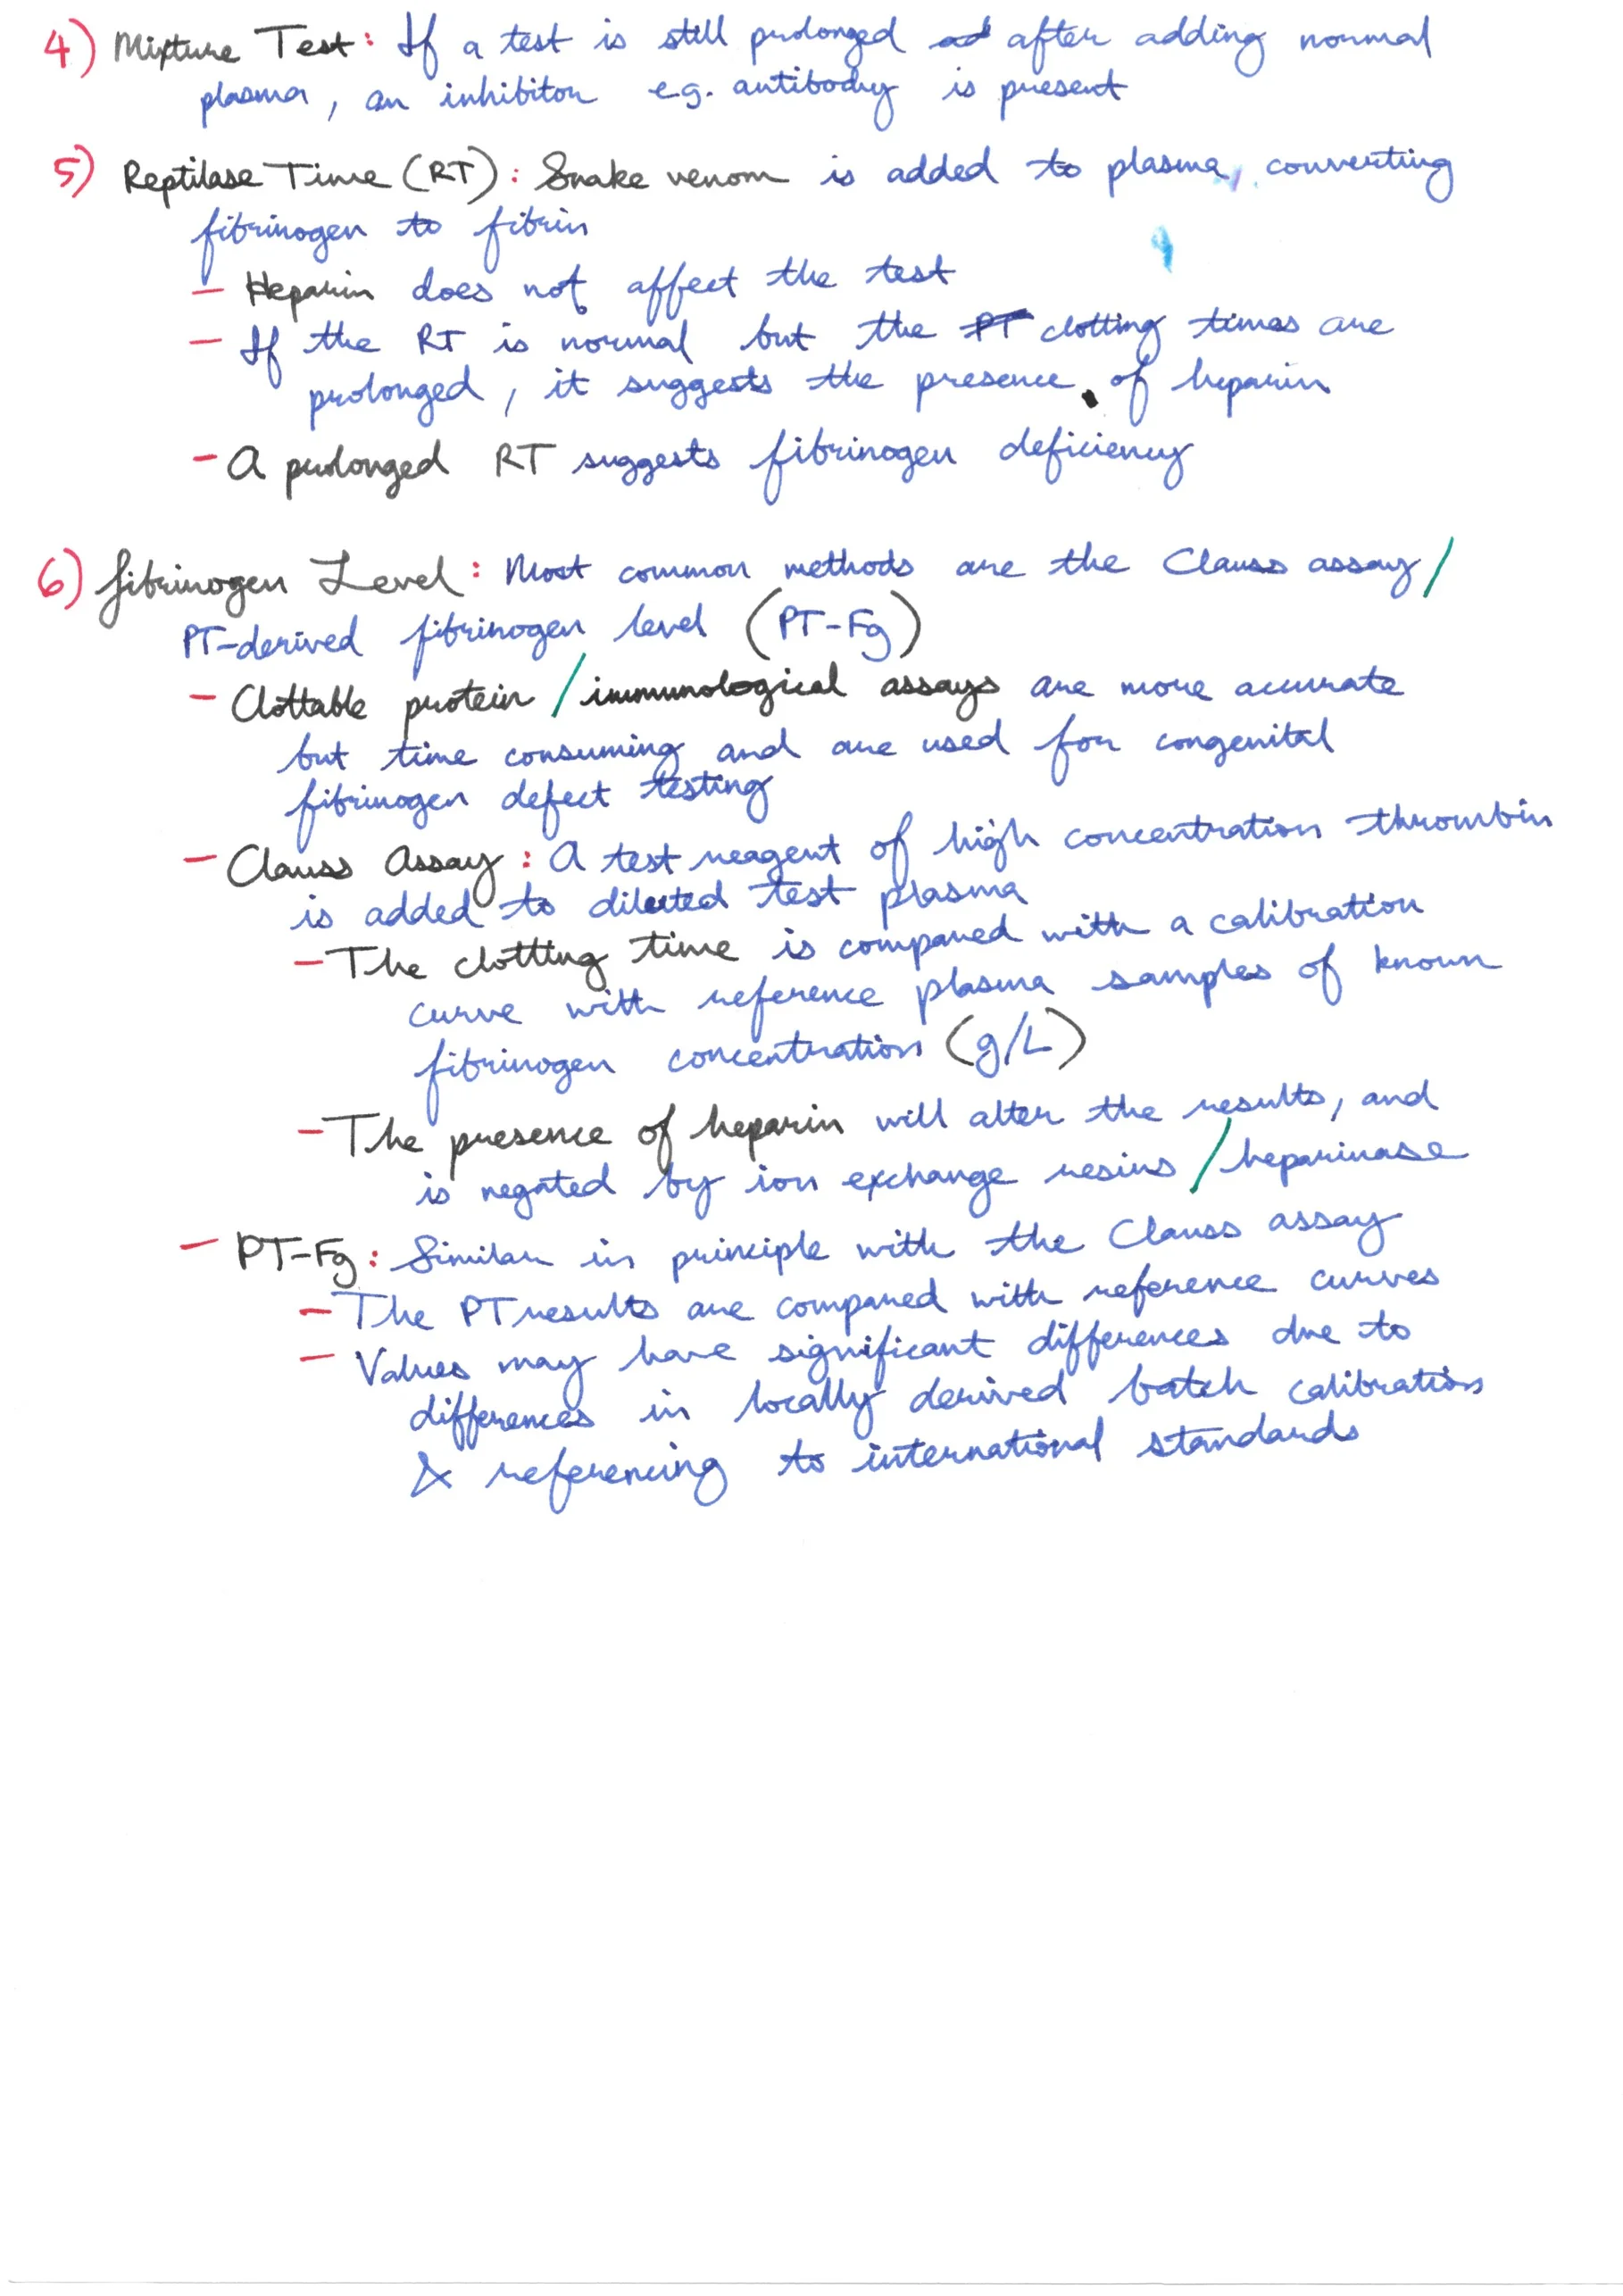 4) Mixture Test: If a test is still prolonged after adding normal
plasma, an inhibitor e.g. antibody is present
5) Reptilase Time (RT): Snake venom is added to plasma, converting
fibrinogen to fibrin
- Heparin does not affect the test
- If the RT is normal but the clotting times are
prolonged, it suggests the presence of heparin
- A prolonged RT suggests fibrinogen deficiency
6) Fibrinogen Level: Most common methods are the Clauss assay/
PT-derived fibrinogen level (PT-Fg)
- Clottable protein / immunological assays are more accurate
but time consuming and are used for congenital
fibrinogen defect testing
- Clauss Assay: A test reagent of high concentration thrombin
is added to diluted test plasma
- The clotting time is compared with a calibration
curve with reference plasma samples of known
fibrinogen concentration (g/L)
- The presence of heparin will alter the results, and
is negated by ion exchange resins / heparinase
- PT-Fg: Similar in principle with the Clauss assay
- The PT results are compared with reference curves
- Values may have significant differences due to
differences in locally derived batch calibration
& referencing to international standards